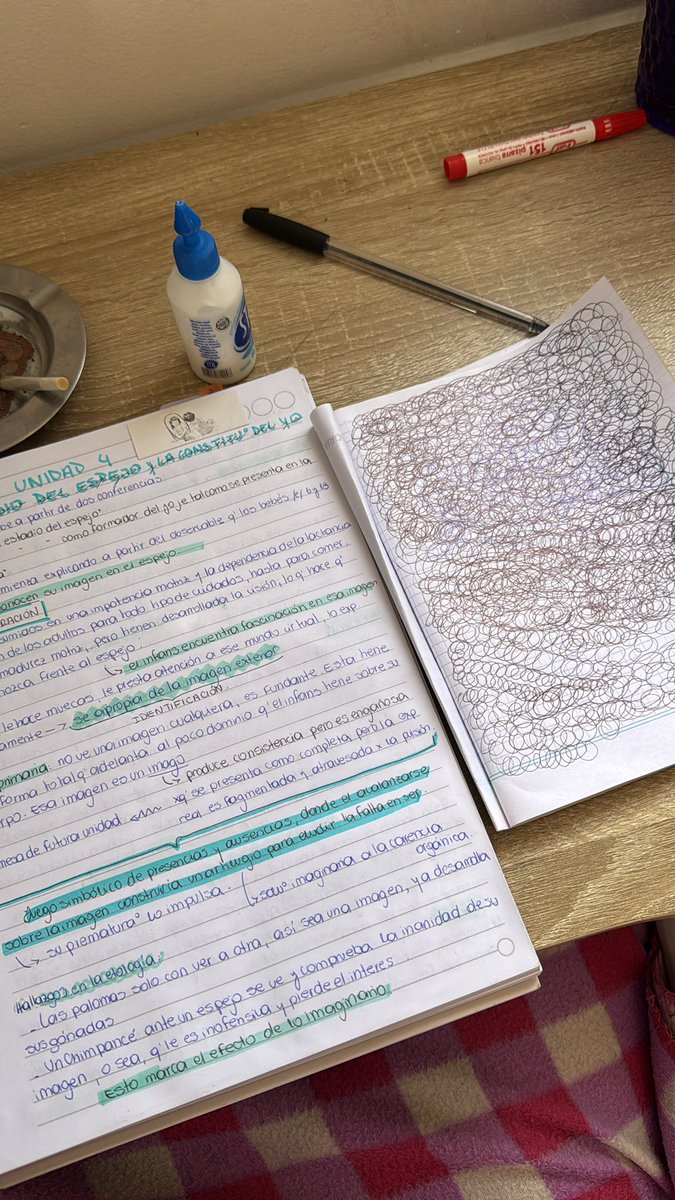 151 pizarra
blanca
UNIDAD 4
DIO DEL ESPEJO Y LA CONSTITU° DEL YO
be a partir de dos conferencias
estadio del espejo"
como formador del yo je tal como se presenta en la
mienza explicando a partir del observable q' los bebés
onocen su imagen en el espejo.
RACIÓN
umidos en una impotencia motriz y la dependencia de la lactancia
de los adultos para todo tipo de cuidados, hasta para comer.
madurez motriz, pero tienen desarrollada la visión, lo q' hace q'
ozca frente al espejo
↳ el infans encuentra fascinación en esa imagen
le hace muecas, le presta atención a ese mundo virtual, lo exp
amente --> se apropia de la imagen exterior
IDENTIFICACIÓN
primaria: no ve una imagen cualquiera, es fundante. Esta tiene
forma total q' adelanta al poco dominio q' el infans tiene sobre su
rpo. Esa imagen es un imago
↳ produce consistencia pero es engañosa
mesa de futura unidad xq' se presenta como completa pero la exp
real es fragmentada y atravesada x la pulsión
Juego simbólico de presencias y ausencias, donde el abalanzarse
sobre la imagen constituiría un artilugio para eludir la falta en ser
↳ su prematura° lo impulsa. ↳ solu° imaginaria a la carencia
orgánica.
Hallazgos en la etología
- Las palomas solo con ver a otra, así sea una imagen, ya desarrolla
sus gónadas
- Un chimpancé ante un espejo se ve y comprueba la inanidad de su
imagen, o sea, q' le es inofensiva y pierde el interés.
Esto marca el efecto de lo imaginario